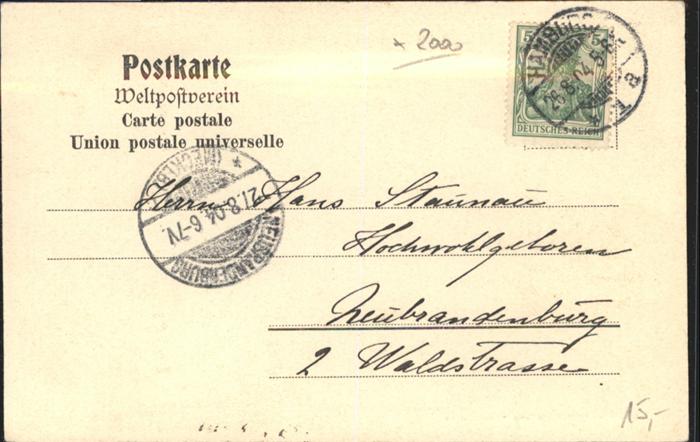 * 2000
Postkarte
Weltpostverein
Carte postale
Union postale universelle
5 5
DEUTSCHES REICH
HAMBURG
26.8.04.5-6N
* 1 a
NEUBRANDENBURG
27.8.04.6-7V.
* (MECKLB.)
Herrn Hans Staunau
Hochwohlgeboren
Neubrandenburg
2 Waldstrasse
15,-